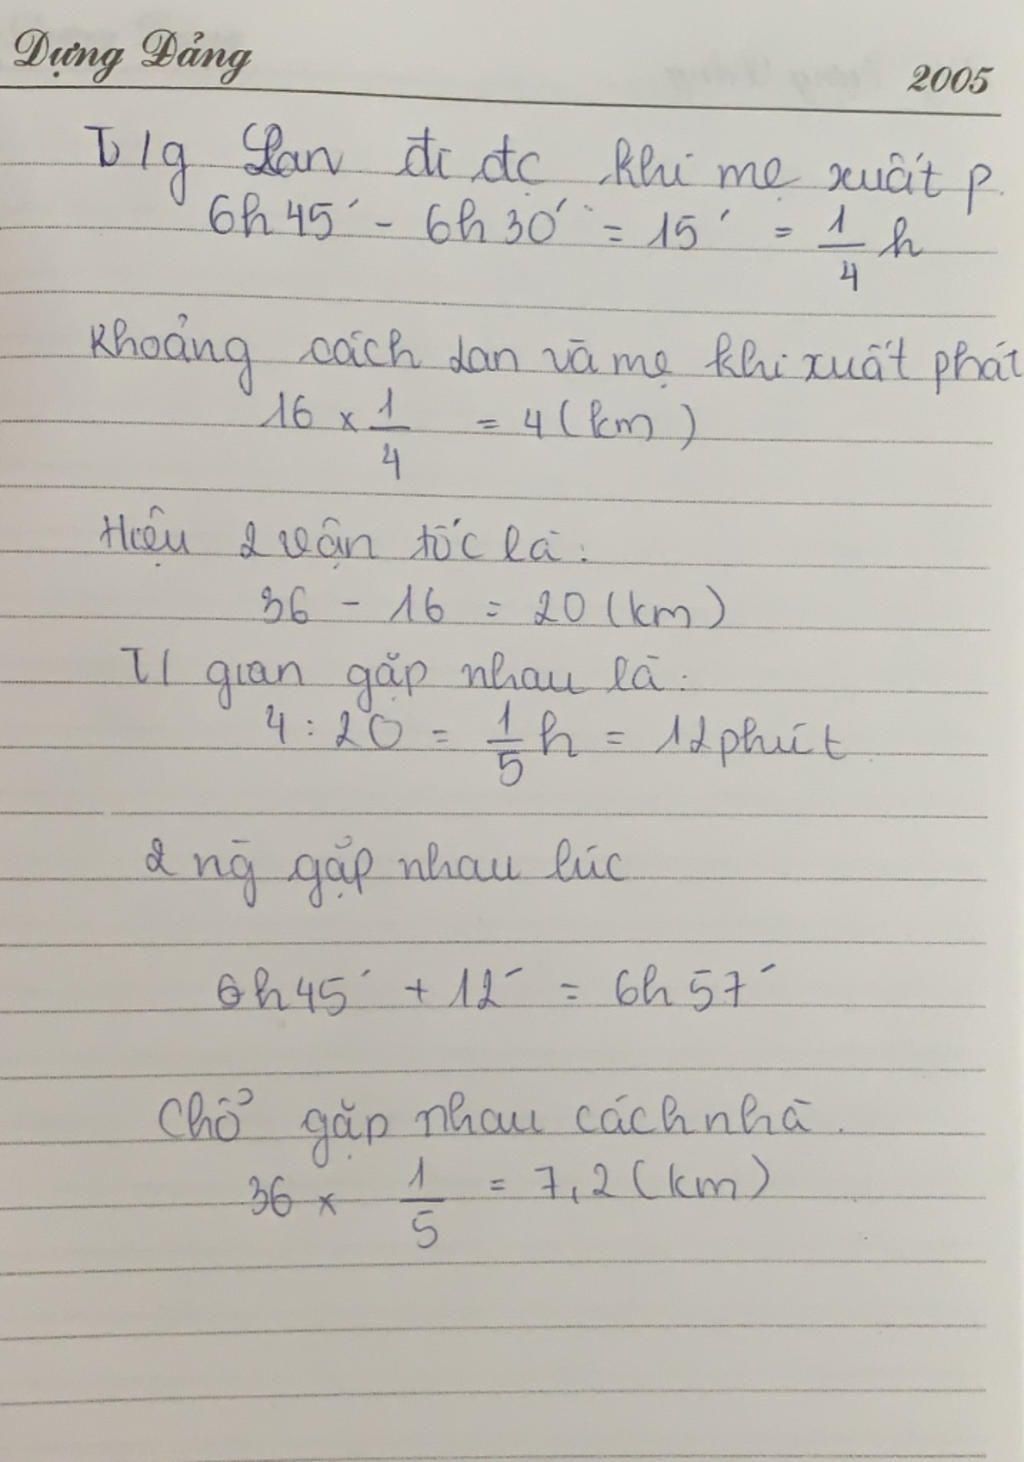 Dựng Đảng
2005
T/g Lan đi đc khi mẹ xuất p.
6h45' - 6h30' = 15' = 1/4 h
Khoảng cách Lan và mẹ khi xuất phát
16 x 1/4 = 4 (km)
Hiệu 2 vận tốc là:
36 - 16 = 20 (km)
T/gian gặp nhau là:
4 : 20 = 1/5 h = 12 phút
2 ng gặp nhau lúc
6h45' + 12' = 6h57'
Chổ gặp nhau cách nhà.
36 x 1/5 = 7,2 (km)